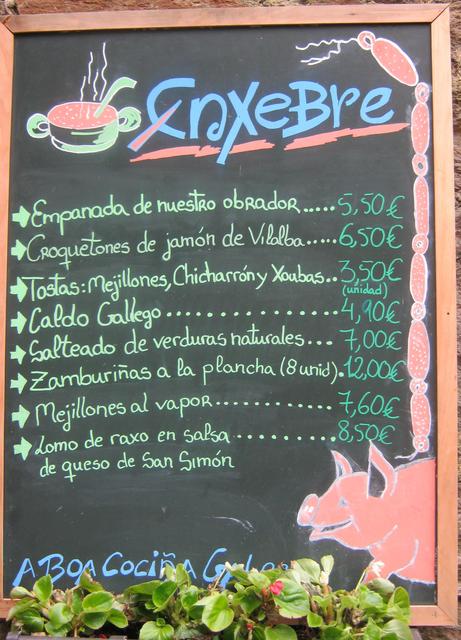 EnxeBre
Empanada de nuestro obrador..... 5,50€
Croquetones de jamón de Vilalba..... 6,50€
Tostas: Mejillones, Chicharrón y Xoubas.. 3,50€
(unidad)
Caldo Gallego ............ 4,90€
Salteado de verduras naturales... 7,00€
Zamburiñas a la plancha (8 unid). 12,00€
Mejillones al vapor........... 7,60€
Lomo de raxo en salsa .......... 8,50€
de queso de San Simón
A BOA COCIÑA